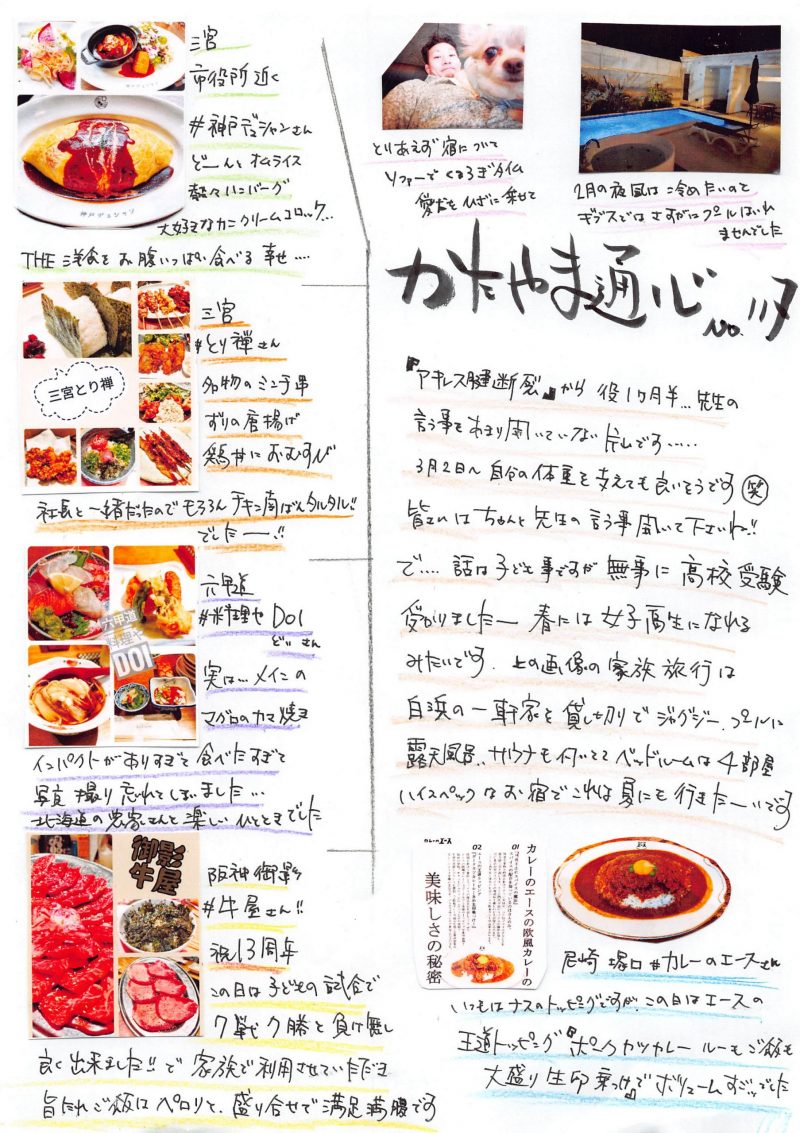 三宮
市役所近く
#神戸デシャンさん
どーんとオムライス
熱々ハンバーグ
大好きなカニクリームコロッケ...
THE 洋食をお腹いっぱい食べる幸せ....
三宮
#とり禅さん
名物のミンチ串
ずりの唐揚げ
鶏丼におむすび
三宮とり禅
社長と一緒だったのでもちろんチキン南ばんタルタル!!
でしたー!!
六甲道
#料理や DOI
どい さん
六甲道
料理や
DOI
実は...メインの
マグロのカマ焼き
インパクトがありすぎて食べたすぎて
写真撮り忘れてしまいました...
北海道のお客さんと楽しいひとときでした
御影
牛屋
阪神御影
#牛屋さん!!
祝13周年
この日は子どもの試合で
7戦7勝と負け無し
良く出来ました!!で家族で利用させていただき
旨だれご飯はペロリと、盛り合せで満足満腹です
とりあえず宿について
ソファーでくつろぎタイム
愛犬をひざに乗せて
2月の夜風は冷めたいので
ギブスではさすがにプールはいれ
ませんでした
かたやま通心 No.117
『アキレス腱断裂』から役1ヶ月半...先生の
言う事をあまり聞いていない片山です.....
3月2日〜自分の体重を支えても良いそうです(笑)
皆さんはちゃんと先生の言う事聞いて下さいね!!
で....話は子ども事ですが無事に高校受験
受かりましたー 春には女子高生になれる
みたいです. 上の画像の家族旅行は
白浜の一軒家を貸し切りでジャグジー、プールに
露天風呂、サウナも付いててベッドルームは4部屋
ハイスペックなお宿でこれは夏にも行きたーいです
カレーのエース
カレーのエースの欧風カレーの
美味しさの秘密
01
02
尼崎 塚口 #カレーのエースさん
いつもはナスのトッピングですが、この日はエースの
王道トッピング『ポークカツカレー ルーもご飯も
大盛り生卵乗っけ』でボリュームすごッでした